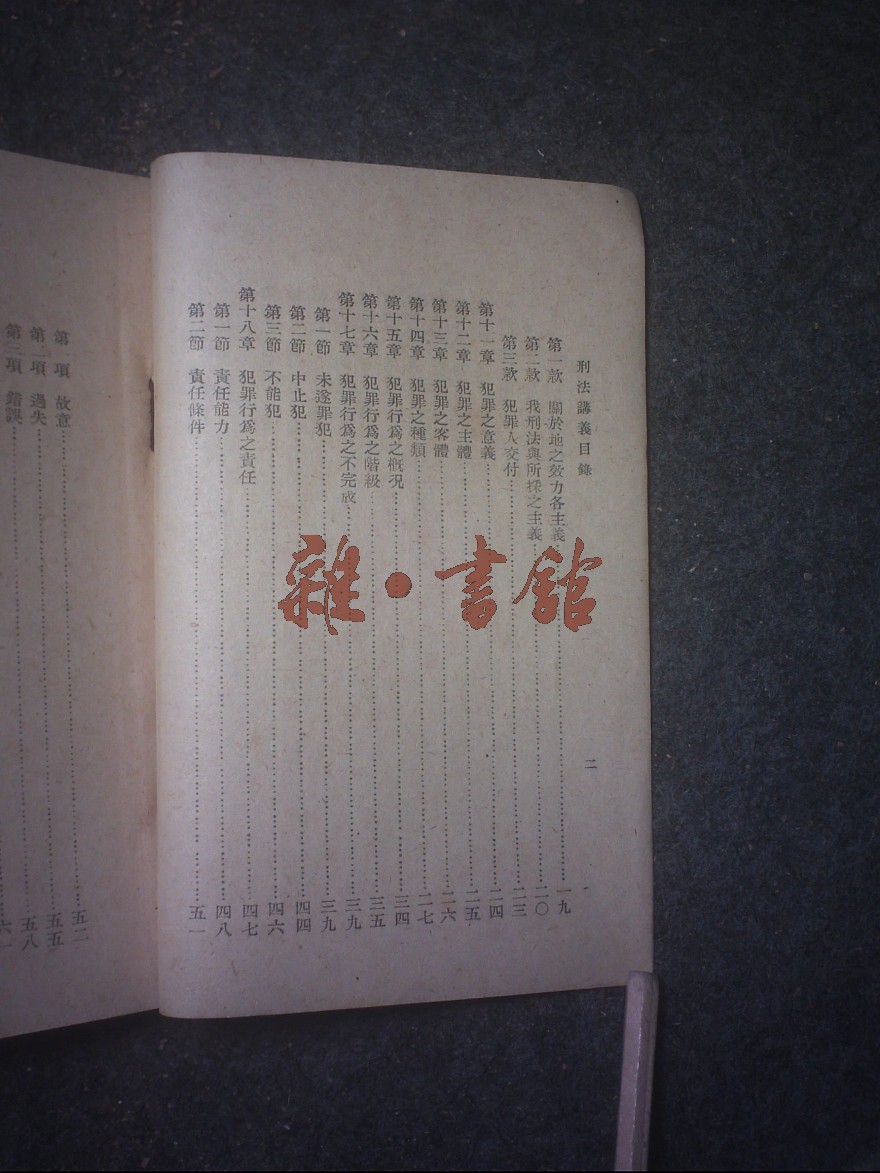 刑法講義目錄
二
第一款 關於地之效力各主義……一九
第二款 我刑法與所採之主義……二〇
第三款 犯罪人交付……二三
第十一章 犯罪之意義……二四
第十二章 犯罪之主體……二五
第十三章 犯罪之客體……二六
第十四章 犯罪之種類……二七
第十五章 犯罪行爲之概况……三四
第十六章 犯罪行爲之階級……三五
第十七章 犯罪行爲之不完成……三九
第一節 未遂罪犯……三九
第二節 中止犯……四四
第三節 不能犯……四六
第十八章 犯罪行爲之責任……四七
第一節 責任能力……四八
第二節 責任條件……五一
第一項 故意……五二
第二項 過失……五五
第三項 錯誤……五八
六一
雜·書館